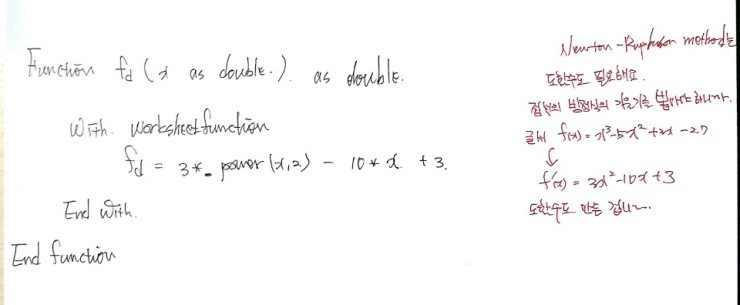 Function fd (x as double.) as double.
With. worksheetfunction
fd = 3*_power(x,2) - 10*x. +3.
End With.
End function
Newton-Raphson method는
도함수도 필요해요.
접선의 방정식의 기울기를 뽑아야하니까.
글씨 f(x) = x³-5x²+3x-27
↓
f'(x) = 3x²-10x+3
도함수도 만든 겁니다.